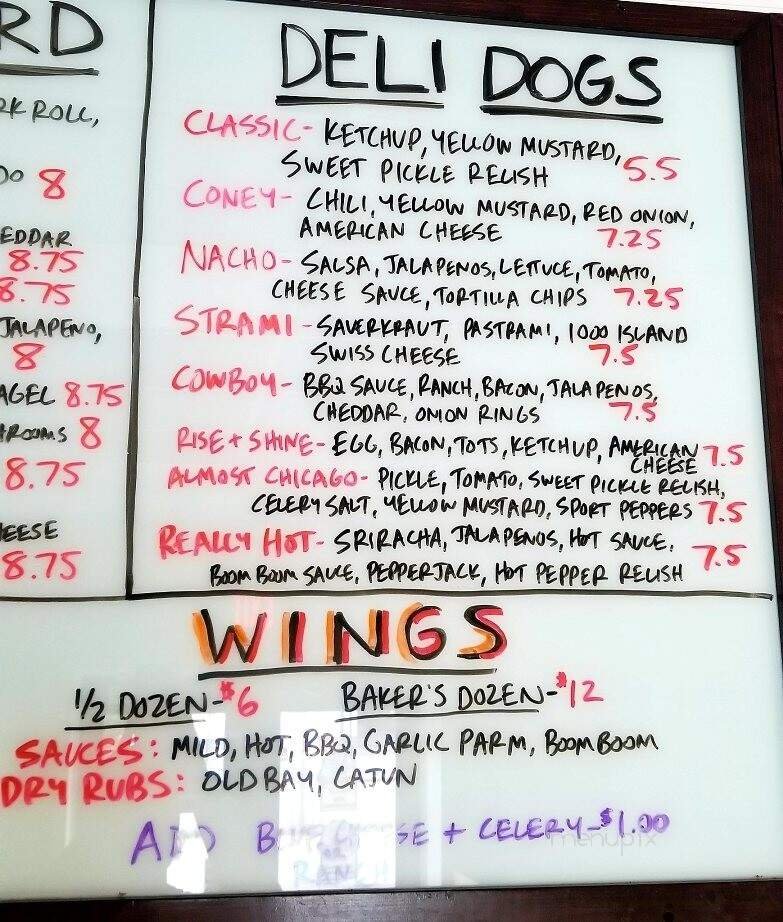 RD
RK ROLL,
DO 8
EDDAR
8.75
8.75
JALAPENO,
8
AGEL 8.75
ROOMS 8
8.75
EESE
8.75
DELI DOGS
CLASSIC- KETCHUP, YELLOW MUSTARD,
SWEET PICKLE RELISH 5.5
CONEY- CHILI, YELLOW MUSTARD, RED ONION,
AMERICAN CHEESE 7.25
NACHO- SALSA, JALAPENOS, LETTUCE, TOMATO,
CHEESE SAUCE, TORTILLA CHIPS 7.25
STRAMI - SAUERKRAUT, PASTRAMI, 1000 ISLAND
SWISS CHEESE 7.5
COWBOY- BBQ SAUCE, RANCH, BACON, JALAPENOS,
CHEDDAR, ONION RINGS 7.5
RISE + SHINE- EGG, BACON, TOTS, KETCHUP, AMERICAN 7.5
CHEESE
ALMOST CHICAGO- PICKLE, TOMATO, SWEET PICKLE RELISH,
CELERY SALT, YELLOW MUSTARD, SPORT PEPPERS 7.5
REALLY HOT- SRIRACHA, JALAPENOS, HOT SAUCE, 7.5
BOOM BOOM SAUCE, PEPPERJACK, HOT PEPPER RELISH
WINGS
1/2 DOZEN-$6 BAKER'S DOZEN-$12
SAUCES: MILD, HOT, BBQ, GARLIC PARM, BOOM BOOM
DRY RUBS: OLD BAY, CAJUN
ADD BLUE CHEESE + CELERY-$1.00
OR
RANCH
menupix